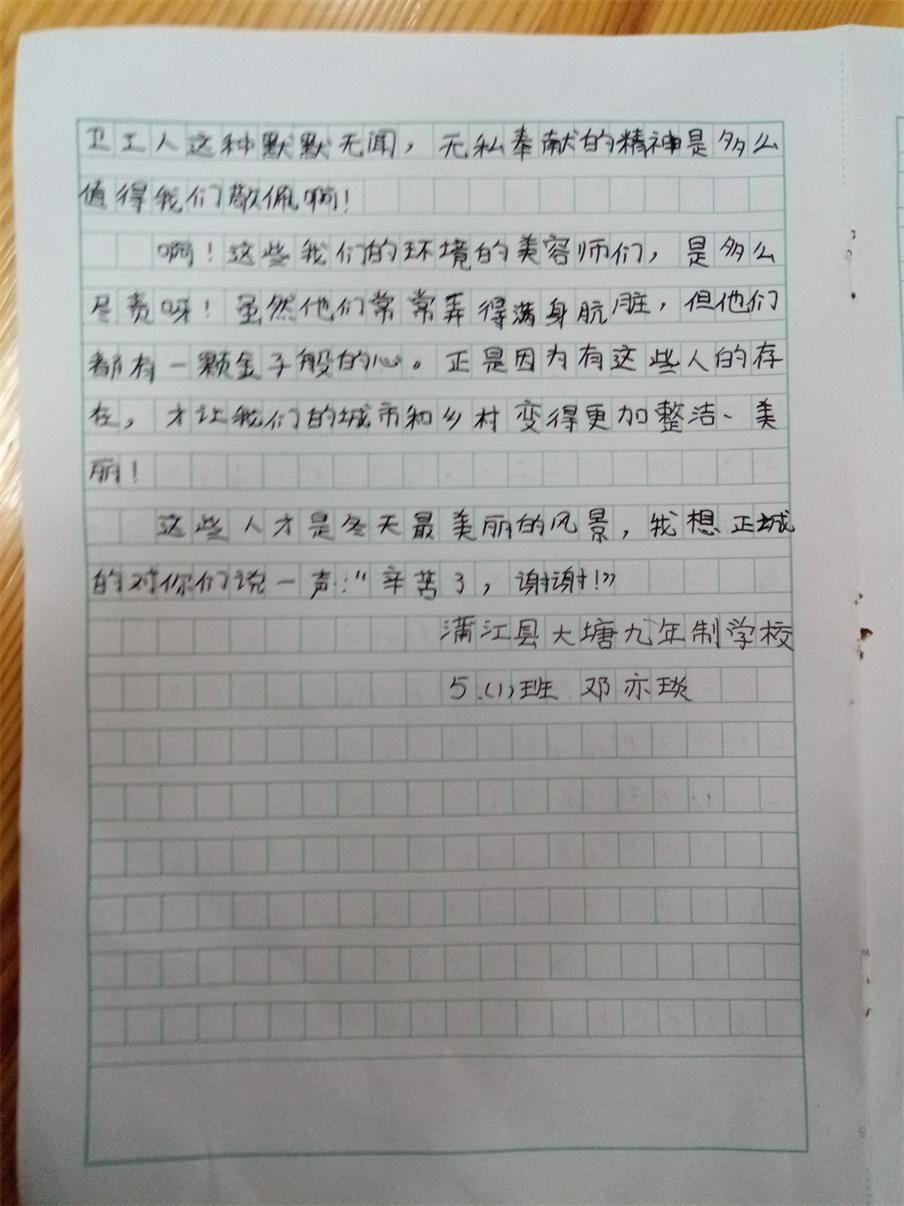 卫工人这种默默无闻，无私奉献的精神是多么
值得我们敬佩啊！
啊！这些我们的环境的美容师们，是多么
尽责呀！虽然他们常常弄得满身肮脏，但他们
都有一颗金子般的心。正是因为有这些人的存
在，才让我们的城市和乡村变得更加整洁、美
丽！
这些人才是冬天最美丽的风景，我想正城
的对你们说一声：“辛苦了，谢谢！”
蒲江县大塘九年制学校
5.(1)班 邓亦琰